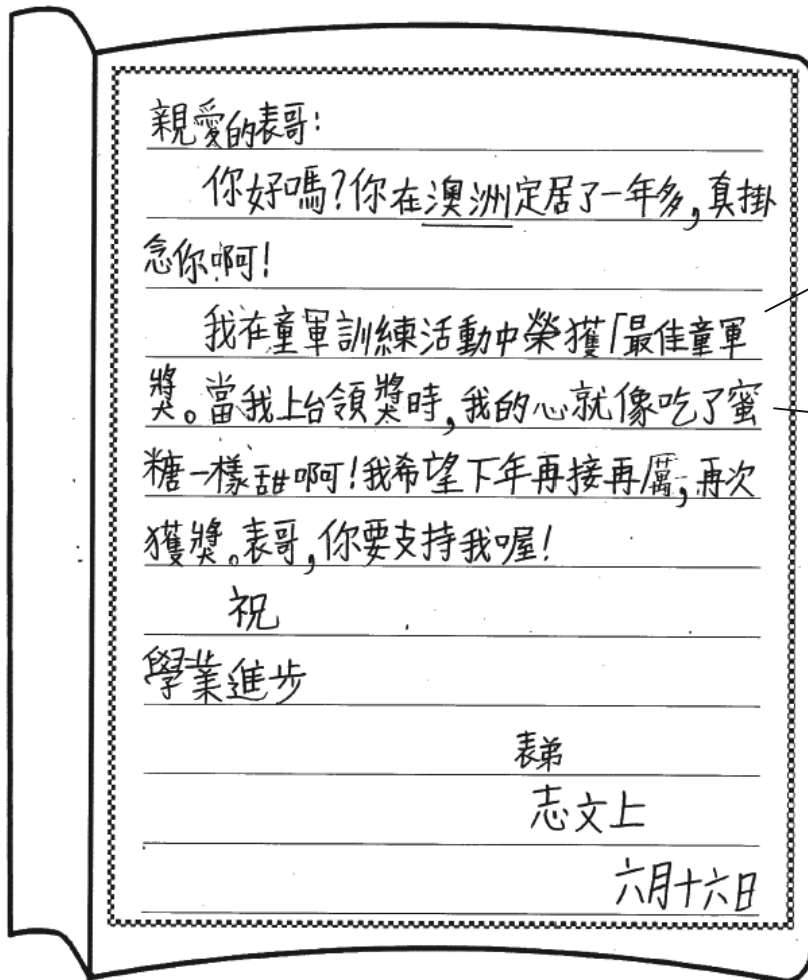 親愛的表哥:
你好嗎?你在澳洲定居了一年多,真掛
念你啊!
我在童軍訓練活動中榮獲「最佳童軍
獎。當我上台領獎時,我的心就像吃了蜜
糖一樣甜啊!我希望下年再接再厲,再次
獲獎。表哥,你要支持我喔!
祝
學業進步
表弟
志文上
六月十六日